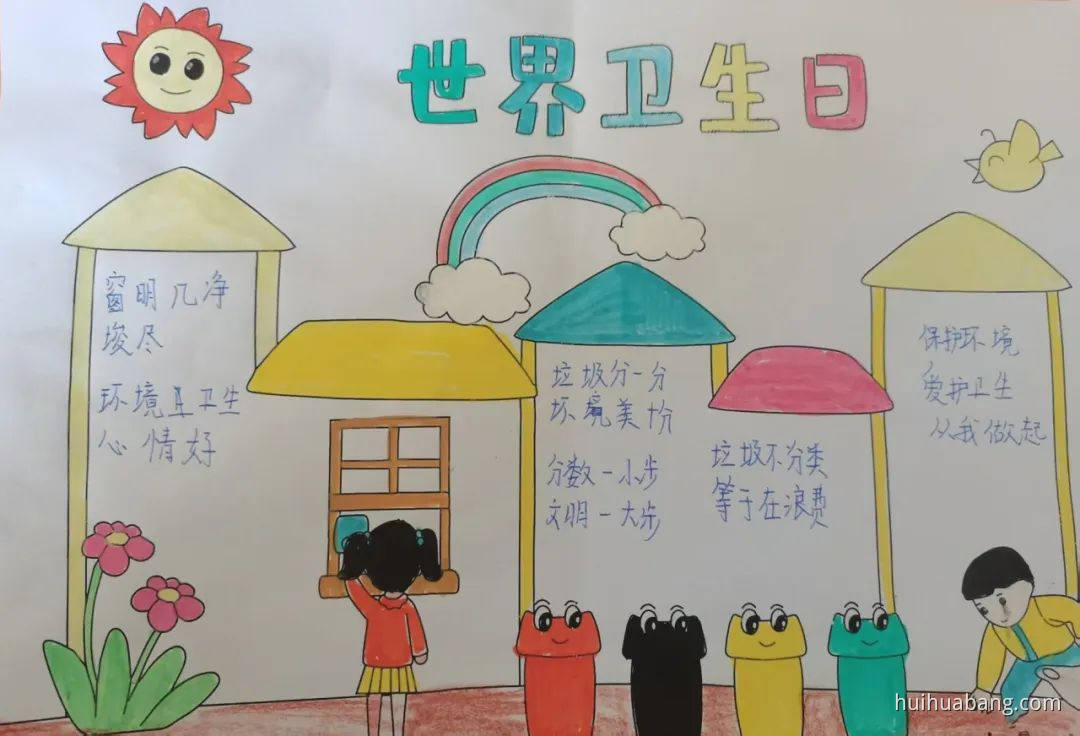 世界卫生日
窗明几净
埈尽
环境卫生
心情好
垃圾分一分
环境美十份
分数一小步
文明一大步
垃圾不分类
等于在浪费
保护环境
爱护卫生
从我做起
huihuabang.com